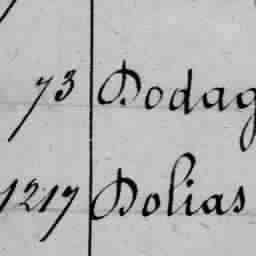 73 Dodag
1217 Dolias